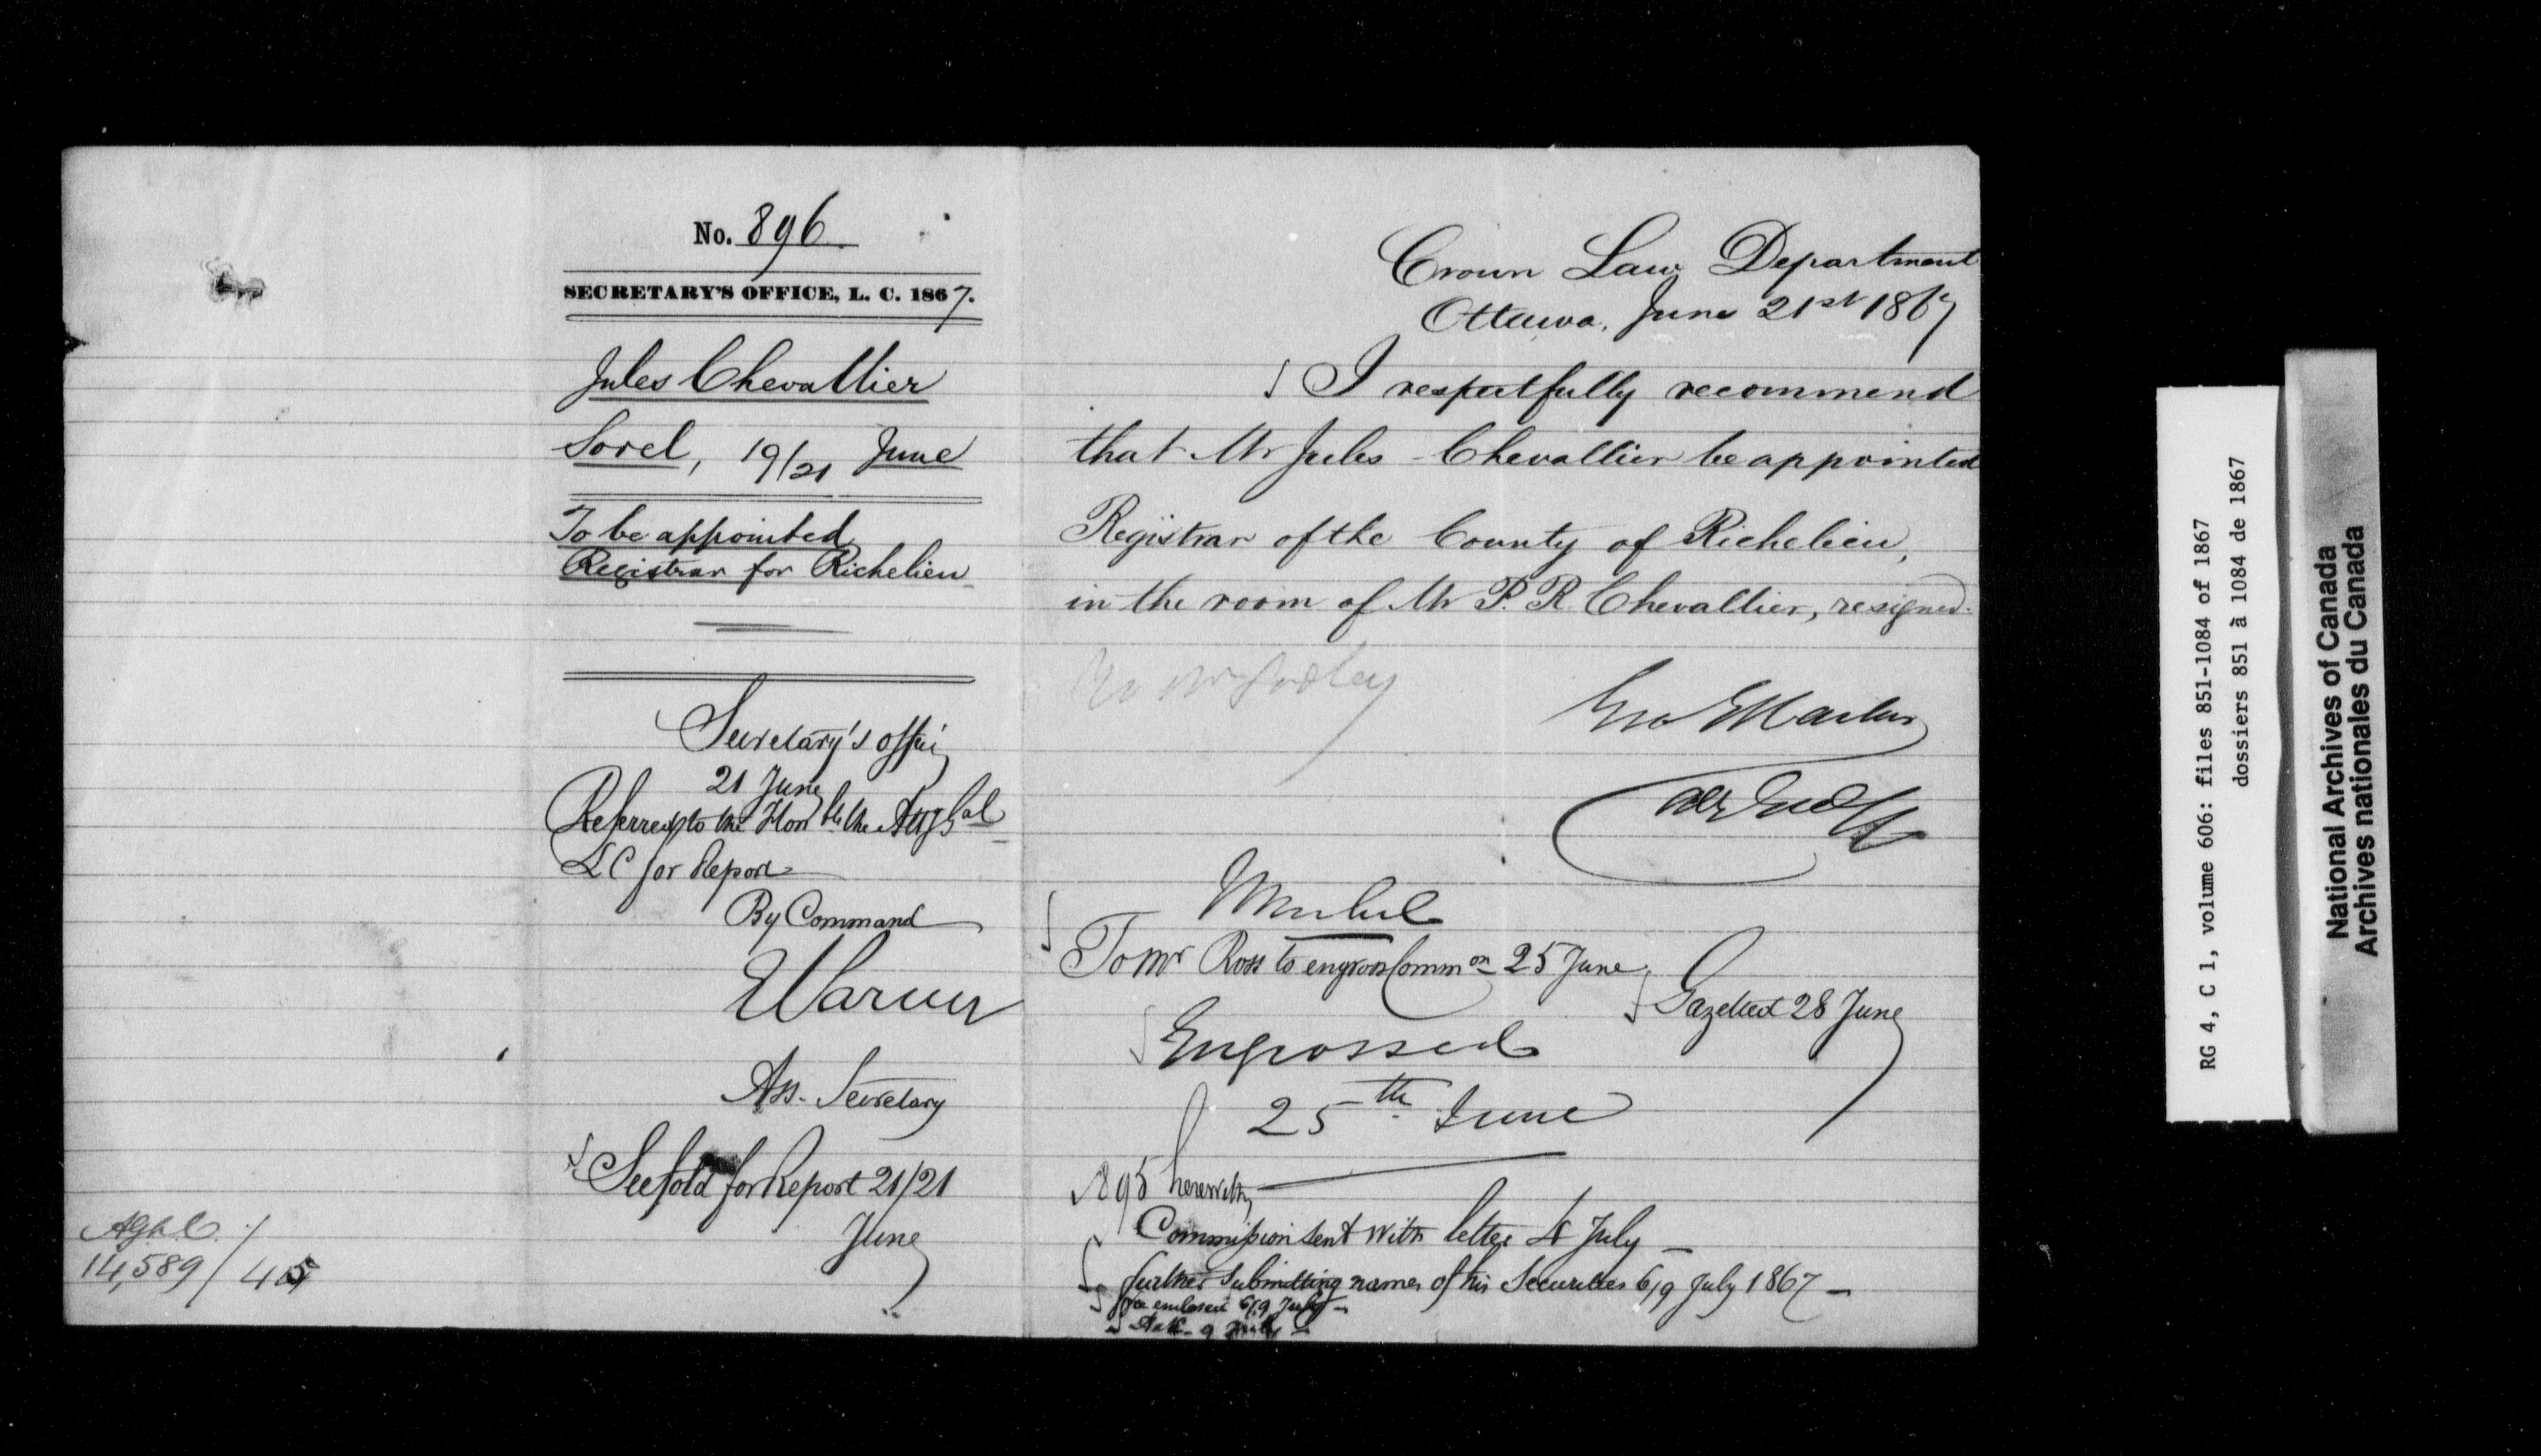 No. 896
SECRETARY'S OFFICE, L. C. 1867.
Jules Chevallier
Sorel, 19/21 June
To be appointed
Registrar for Richelieu
Secretary's office
21 June
Referred to the Honble the Atty Gal
LC for Report
By Command
Ass. Secretary
See fold for Report 21/21
June
14,589 / 45
Crown Law Department
Ottawa, June 21st 1867
I respectfully recommend
that Mr Jules Chevallier be appointed
Registrar of the County of Richelieu,
in the room of Mr P. R. Chevallier, resigned.
Geo E Cartier
To Mr Ross to engross Common 25 June
Gazetted 28 June
Engrossed
25th June
895 herewith
Commission sent with letter 4 July
further submitting names of his Securities 6/9 July 1867
enclosed 6/9 July
9 July
RG 4, C 1, volume 606: files 851-1084 of 1867
dossiers 851 à 1084 de 1867
National Archives of Canada
Archives nationales du Canada